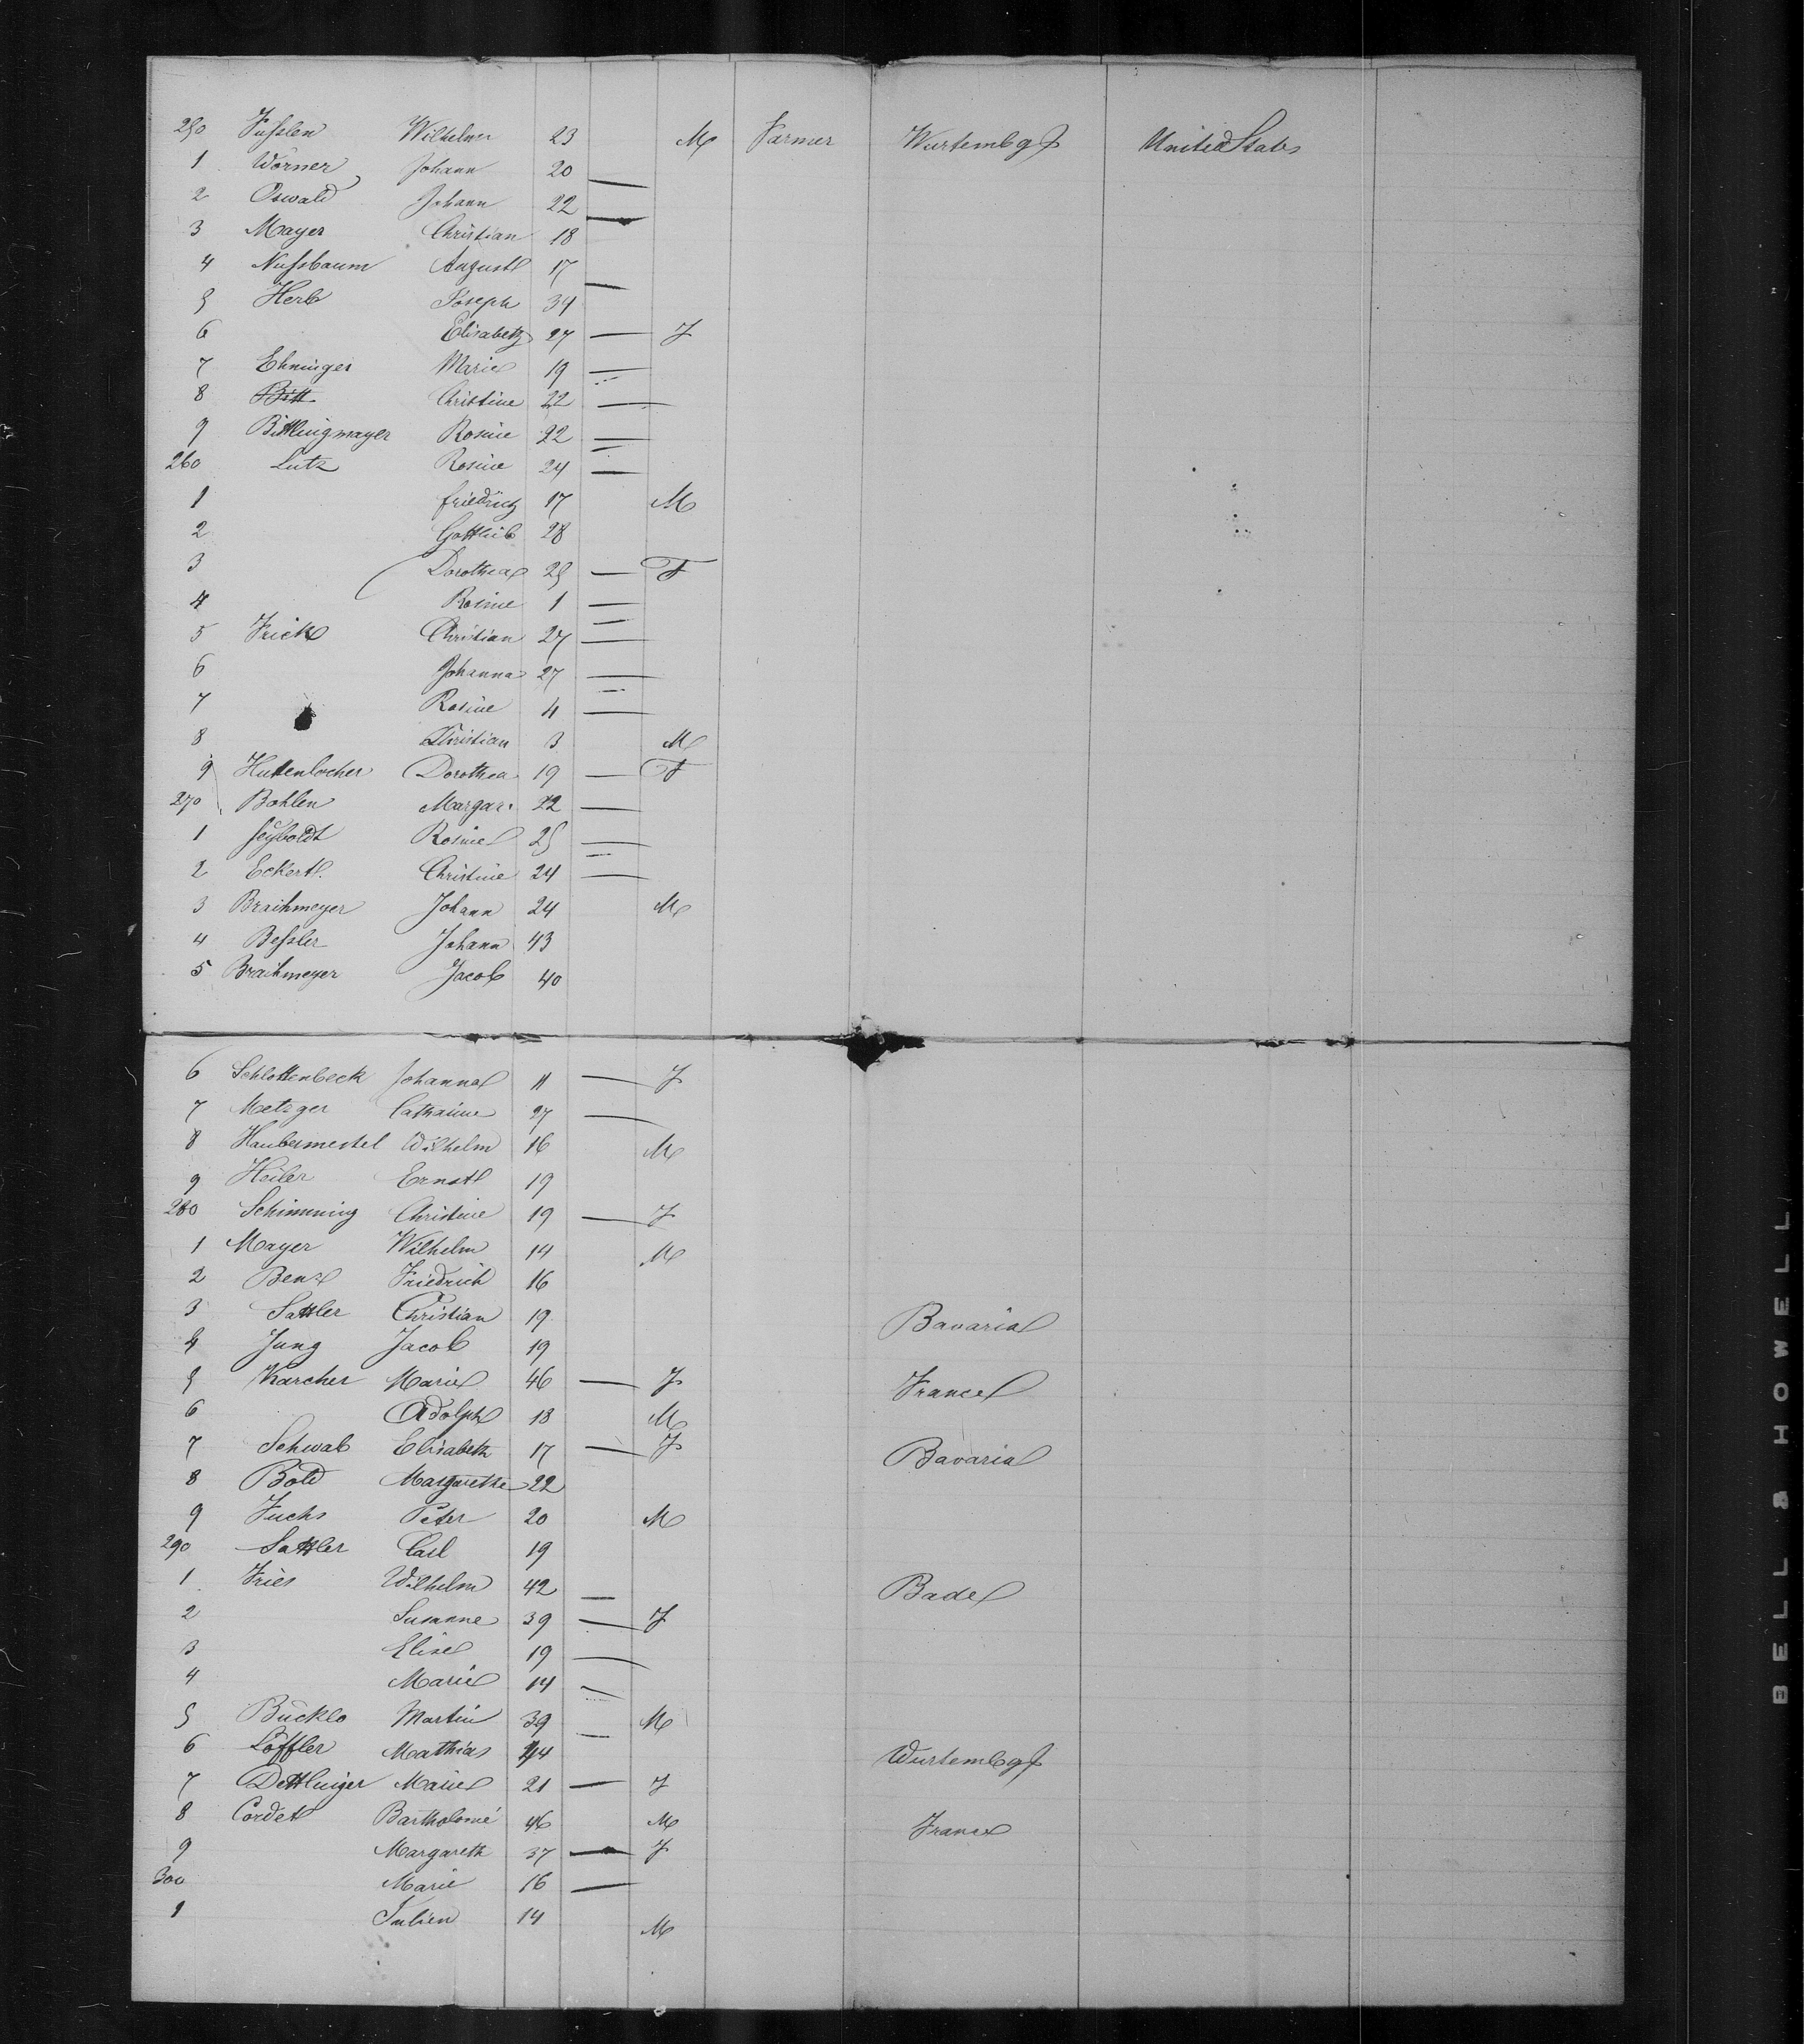 250 Fusslen Wilhelm 23 M Farmer Wurtembg United States
1 Wörner Johann 20
2 Oswald Johann 22
3 Mayer Christian 18
4 Nussbaum August 17
5 Herb Joseph 34
6 Elisabeth 27 — F
7 Ehninger Marie 19 —
8 Bitt Christine 22 —
9 Bittlingmayer Rosine 22 —
260 Lutz Rosine 24 —
1 Friedrich 17 M
2 Gottlieb 28
3 Dorothea 25 — F
4 Rosine 1 —
5 Frick Christian 27 —
6 Johanna 27 —
7 Rosine 4 —
8 Christian 3 M
9 Huttenlocher Dorothea 19 — F
270 Bohlen Margar. 22 —
1 Seyboldt Rosine 25 —
2 Eckert Christine 24 —
3 Braihmeyer Johann 24 M
4 Bessler Johann 43
5 Braihmeyer Jacob 40
6 Schlottenbeck Johanna 11 — F
7 Metzger Catharine 27 —
8 Haubermestel Wilhelm 16 M
9 Heiler Ernst 19
280 Schimming Christine 19 — F
1 Mayer Wilhelm 14 M
2 Benz Friedrich 16
3 Sattler Christian 19 Bavaria
4 Jung Jacob 19
5 Karcher Marie 46 — F France
6 Adolph 18 M
7 Schwab Elisabeth 17 — F Bavaria
8 Bold Margarethe 22
9 Fuchs Peter 20 M
290 Sattler Carl 19
1 Fries Wilhelm 42 — Bade
2 Susanne 39 — F
3 Elise 19 —
4 Marie 14 —
5 Bucklo Martin 39 — M
6 Löffler Mathias 44 Wurtembg
7 Dettlinger Marie 21 — F
8 Cordet Bartholomé 46 M France
9 Margareth 37 — F
300 Marie 16 —
1 Julien 14 M
BELL & HOWELL